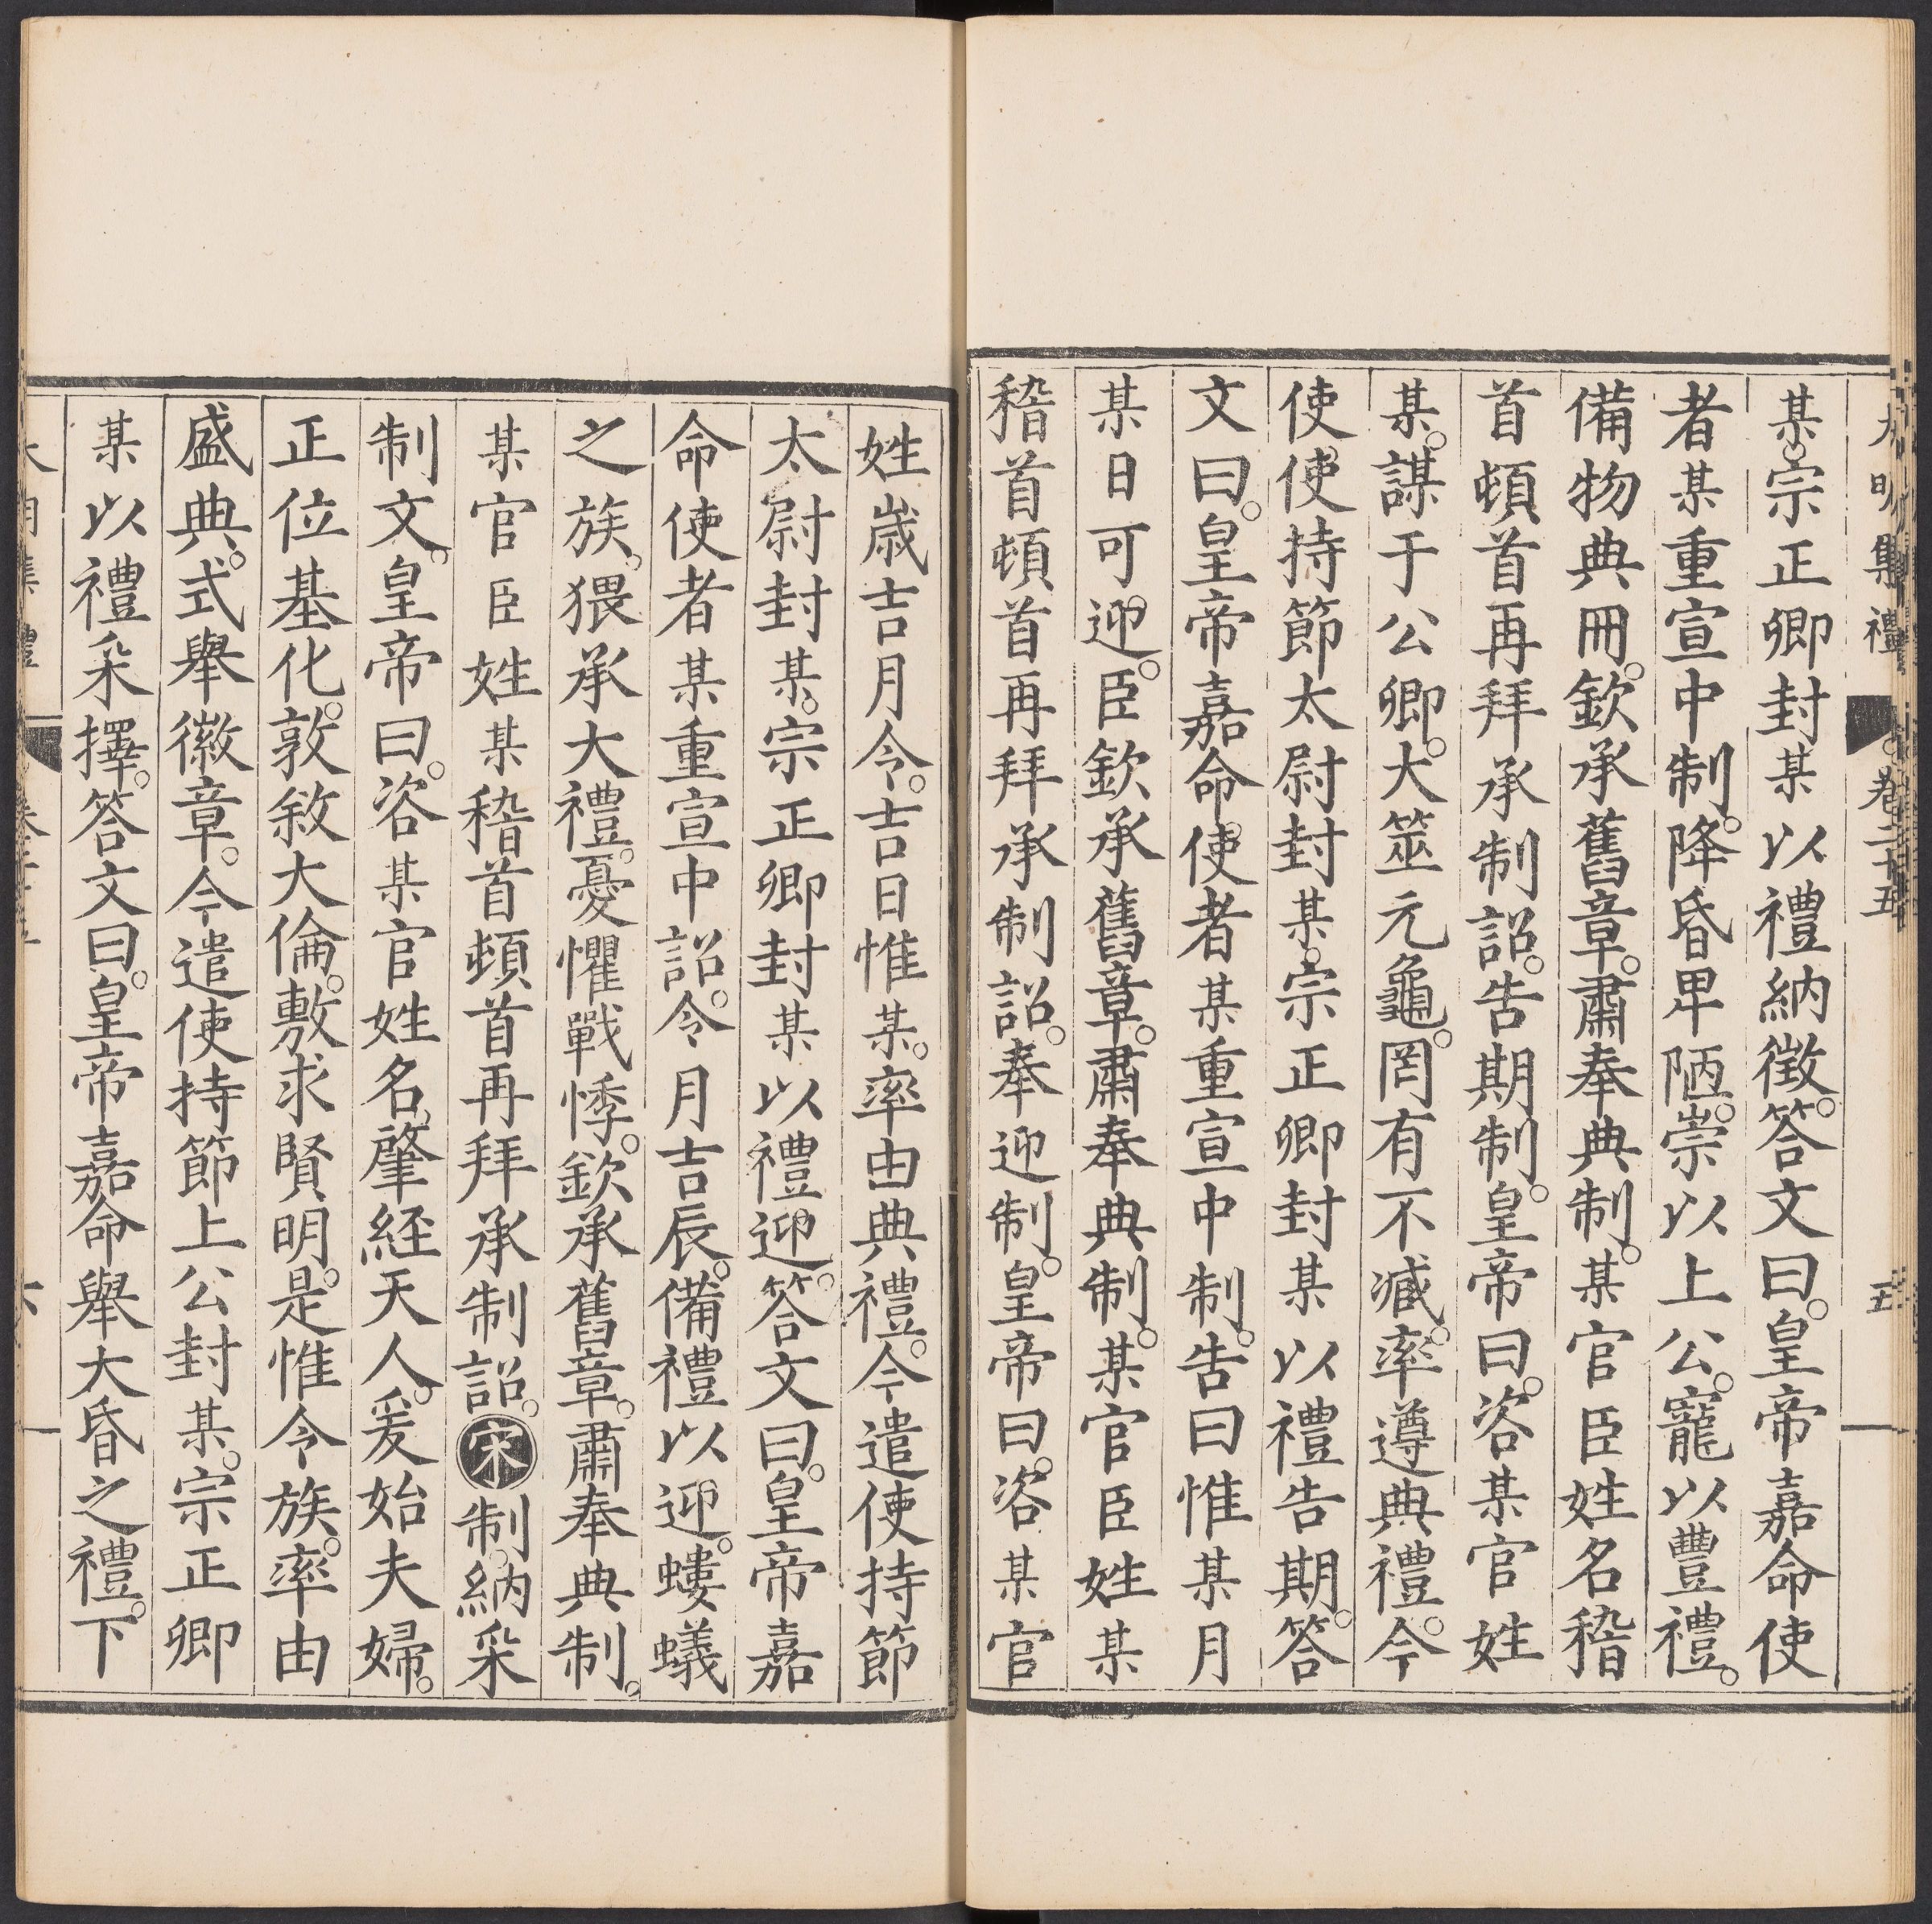 大明集禮 卷二十五 五
某。宗正卿封某以禮納徵。答文曰。皇帝嘉命使
者某重宣中制。降昏卑陋。崇以上公。寵以豐禮。
備物典冊。欽承舊章。肅奉典制。某官臣姓名稽
首頓首再拜承制詔。告期制。皇帝曰。咨某官姓
某。謀于公卿。大筮元龜。罔有不臧。率遵典禮。今
使使持節太尉封某。宗正卿封某以禮告期。答
文曰。皇帝嘉命。使者某重宣中制。告曰惟某月
某日可迎。臣欽承舊章。肅奉典制。某官臣姓某
稽首頓首再拜承制詔。奉迎制。皇帝曰。咨某官
姓歲吉月令。吉日惟某。率由典禮。今遣使持節
太尉封某。宗正卿封某以禮迎。答文曰。皇帝嘉
命使者某重宣中詔。令月吉辰。備禮以迎。螻蟻
之族。猥承大禮。憂懼戰悸。欽承舊章。肅奉典制。
某官臣姓某稽首頓首再拜承制詔。宋制納采
制文。皇帝曰。咨某官姓名。肇經天人。爰始夫婦。
正位基化。敦敘大倫。敷求賢明。是惟令族。率由
盛典。式舉徽章。今遣使持節上公封某。宗正卿
某以禮采擇。答文曰。皇帝嘉命舉大昏之禮。下
大明集禮 卷二十五 六